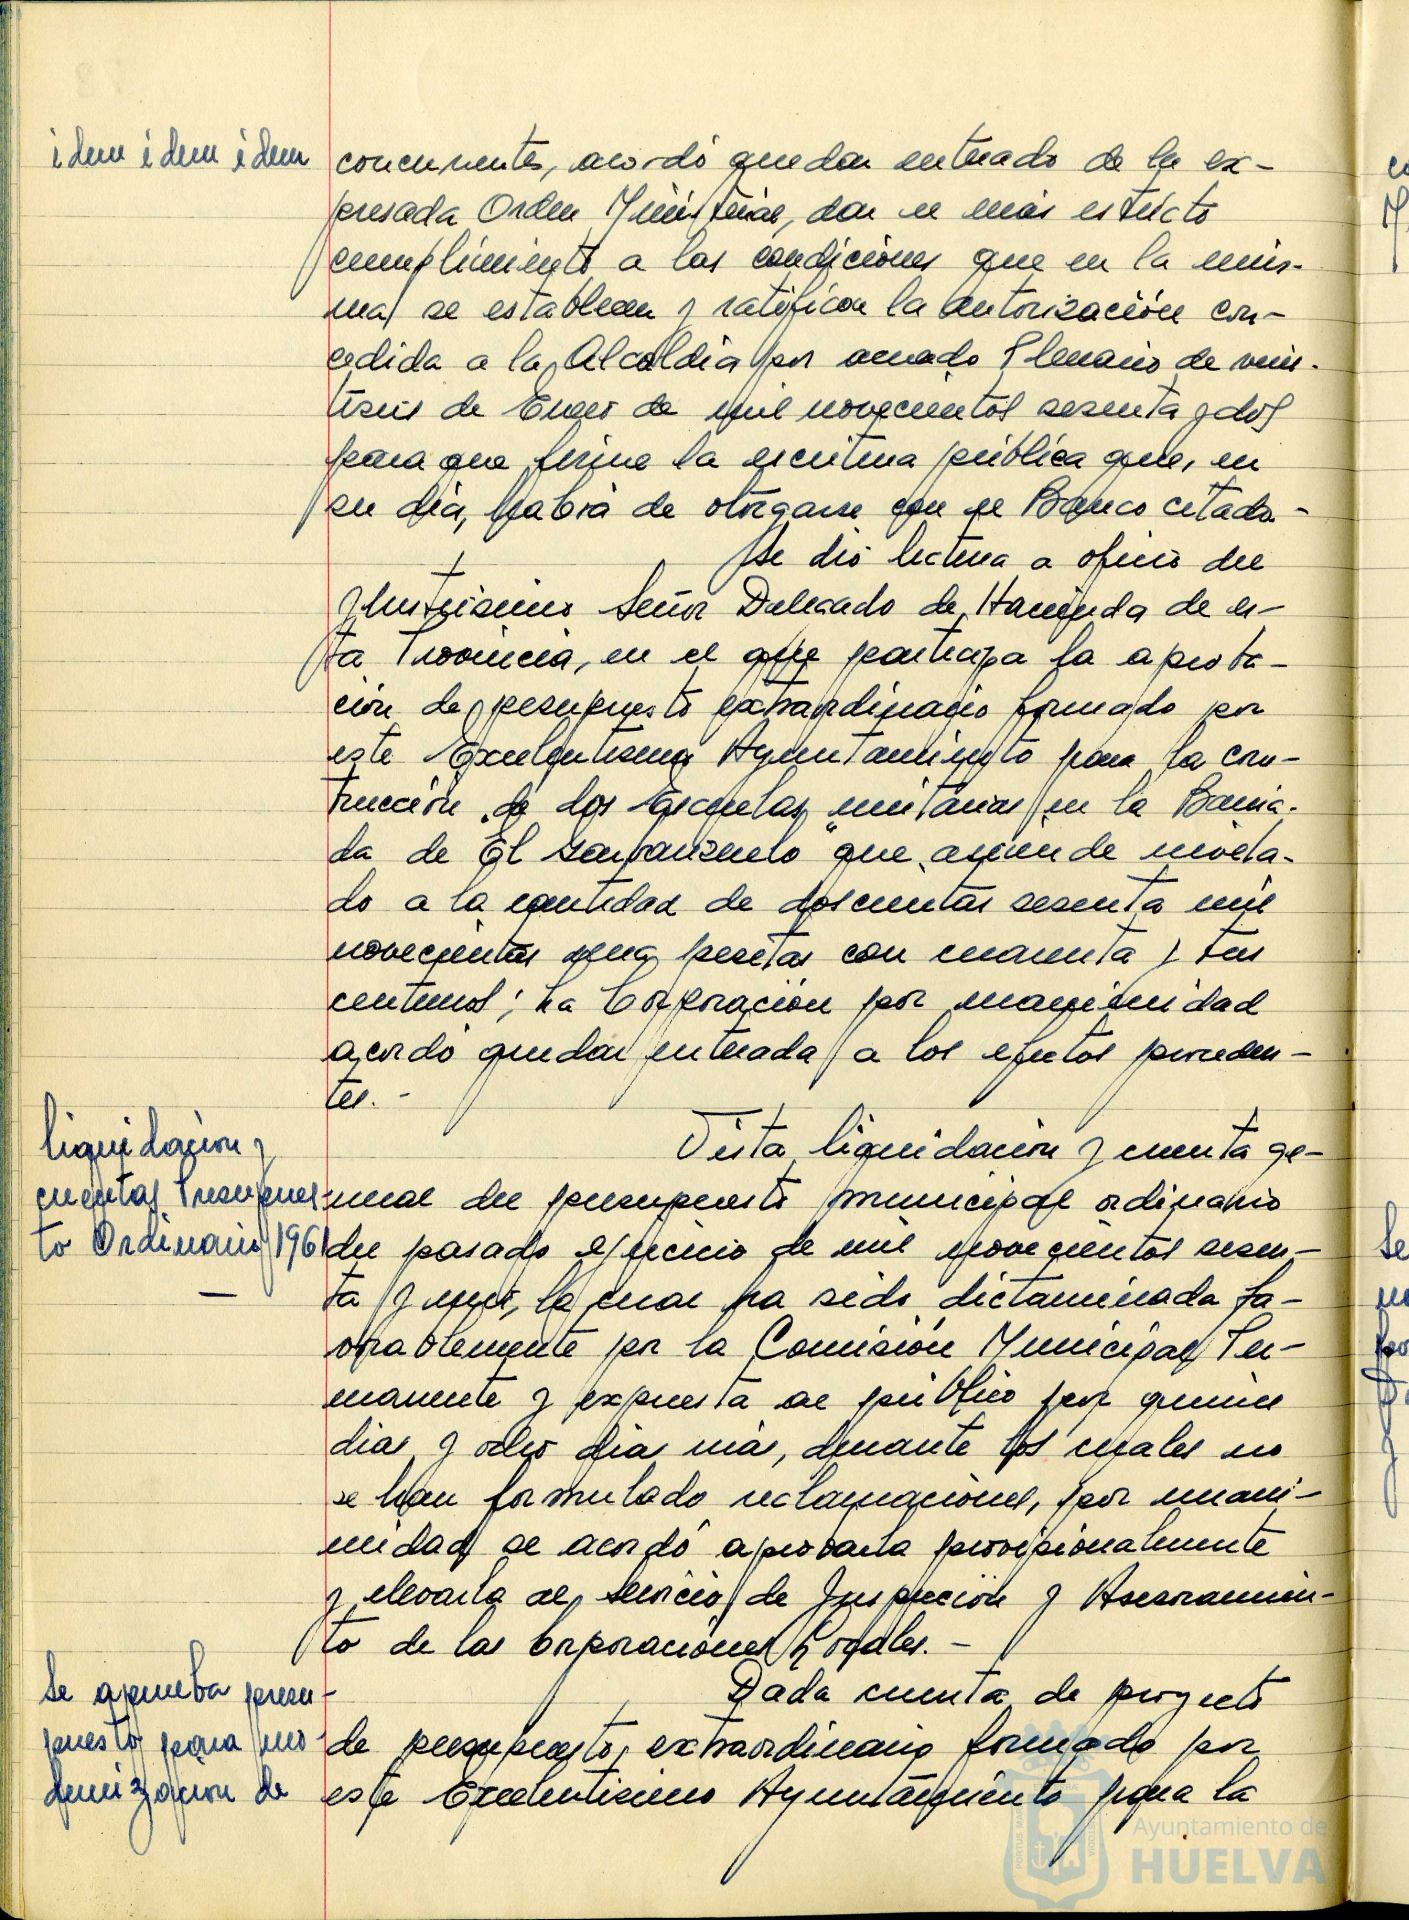 idem idem idem
concurrentes, acordó quedar enterado de la ex-
presada Orden Ministerial, dar el más estricto
cumplimiento a las condiciones que en la mis-
ma se establecen y ratificar la autorización con-
cedida a la Alcaldía por acuerdo Plenario de vein-
tiseis de Enero de mil novecientos sesenta y dos
para que firme la escritura pública que, en
su día, habrá de otorgarse con el Banco citado.-
Se dió lectura a oficio del
Ilustrisimo Señor Delegado de Hacienda de es-
ta Provincia, en el que participa la aproba-
ción de presupuesto extraordinario formado por
este Excelentisimo Ayuntamiento para la cons-
trucción de dos Escuelas unitarias en la Barria-
da de "El Garbanzuelo" que asciende nivela-
do a la cantidad de doscientas sesenta mil
novecientas una pesetas con cuarenta y tres
centimos; La Corporación por unanimidad
acordó quedar enterada a los efectos proceden-
tes.-
Liquidación y
cuentas Presupues-
to Ordinario 1961
Vista liquidación y cuenta ge-
neral del presupuesto municipal ordinario
del pasado ejercicio de mil novecientos sesen-
ta y uno, la cual ha sido dictaminada fa-
vorablemente por la Comisión Municipal Per-
manente y expuesta al público por quince
dias y ocho dias más, durante los cuales no
se han formulado reclamaciones, por unani-
midad se acordó aprobarla provisionalmente
y elevarla al Servicio de Inspección y Asesoramien-
to de las Corporaciones Locales.-
Se aprueba presu-
puesto para mo-
dernización de
Dada cuenta de proyecto
de presupuesto extraordinario formado por
este Excelentisimo Ayuntamiento para la
Ayuntamiento de
HUELVA